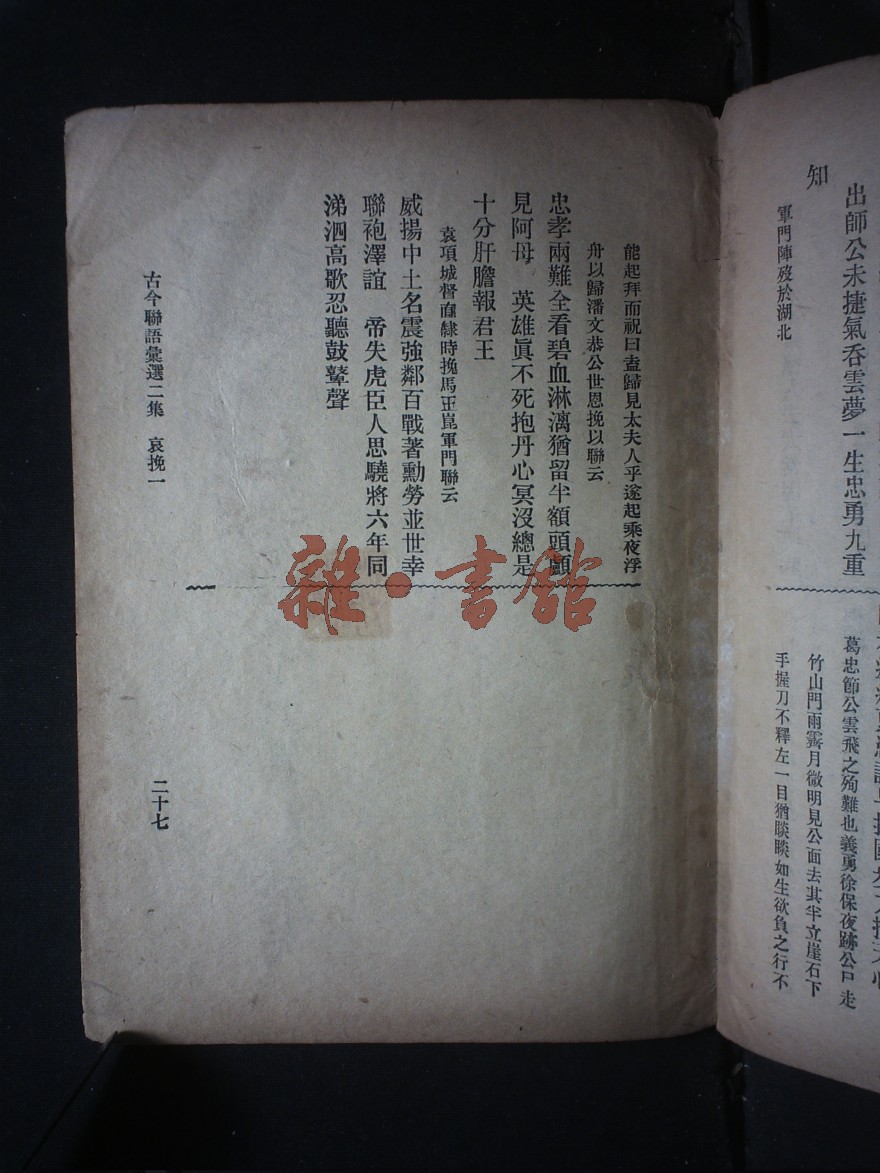 知
出師公未捷氣吞雲夢一生忠勇九重
軍門陣歿於湖北
葛忠節公雲飛之殉難也義勇徐保夜跡公尸走
竹山門雨霽月微明見公面去其半立崖石下
手握刀不釋左一目猶睒睒如生欲負之行不
能起拜而祝曰盍歸見太夫人乎遂起乘夜浮
舟以歸潘文恭公世恩挽以聯云
忠孝兩難全看碧血淋漓猶留半額頭顱
見阿母　英雄眞不死抱丹心冥沒總是
十分肝膽報君王
袁項城督直隸時挽馬玉崑軍門聯云
威揚中土名震強鄰百戰著勳勞並世幸
聯袍澤誼　帝失虎臣人思驍將六年同
涕泗高歌忍聽鼓鼙聲
古今聯語彙選二集　哀挽一
二十七
雜·書館